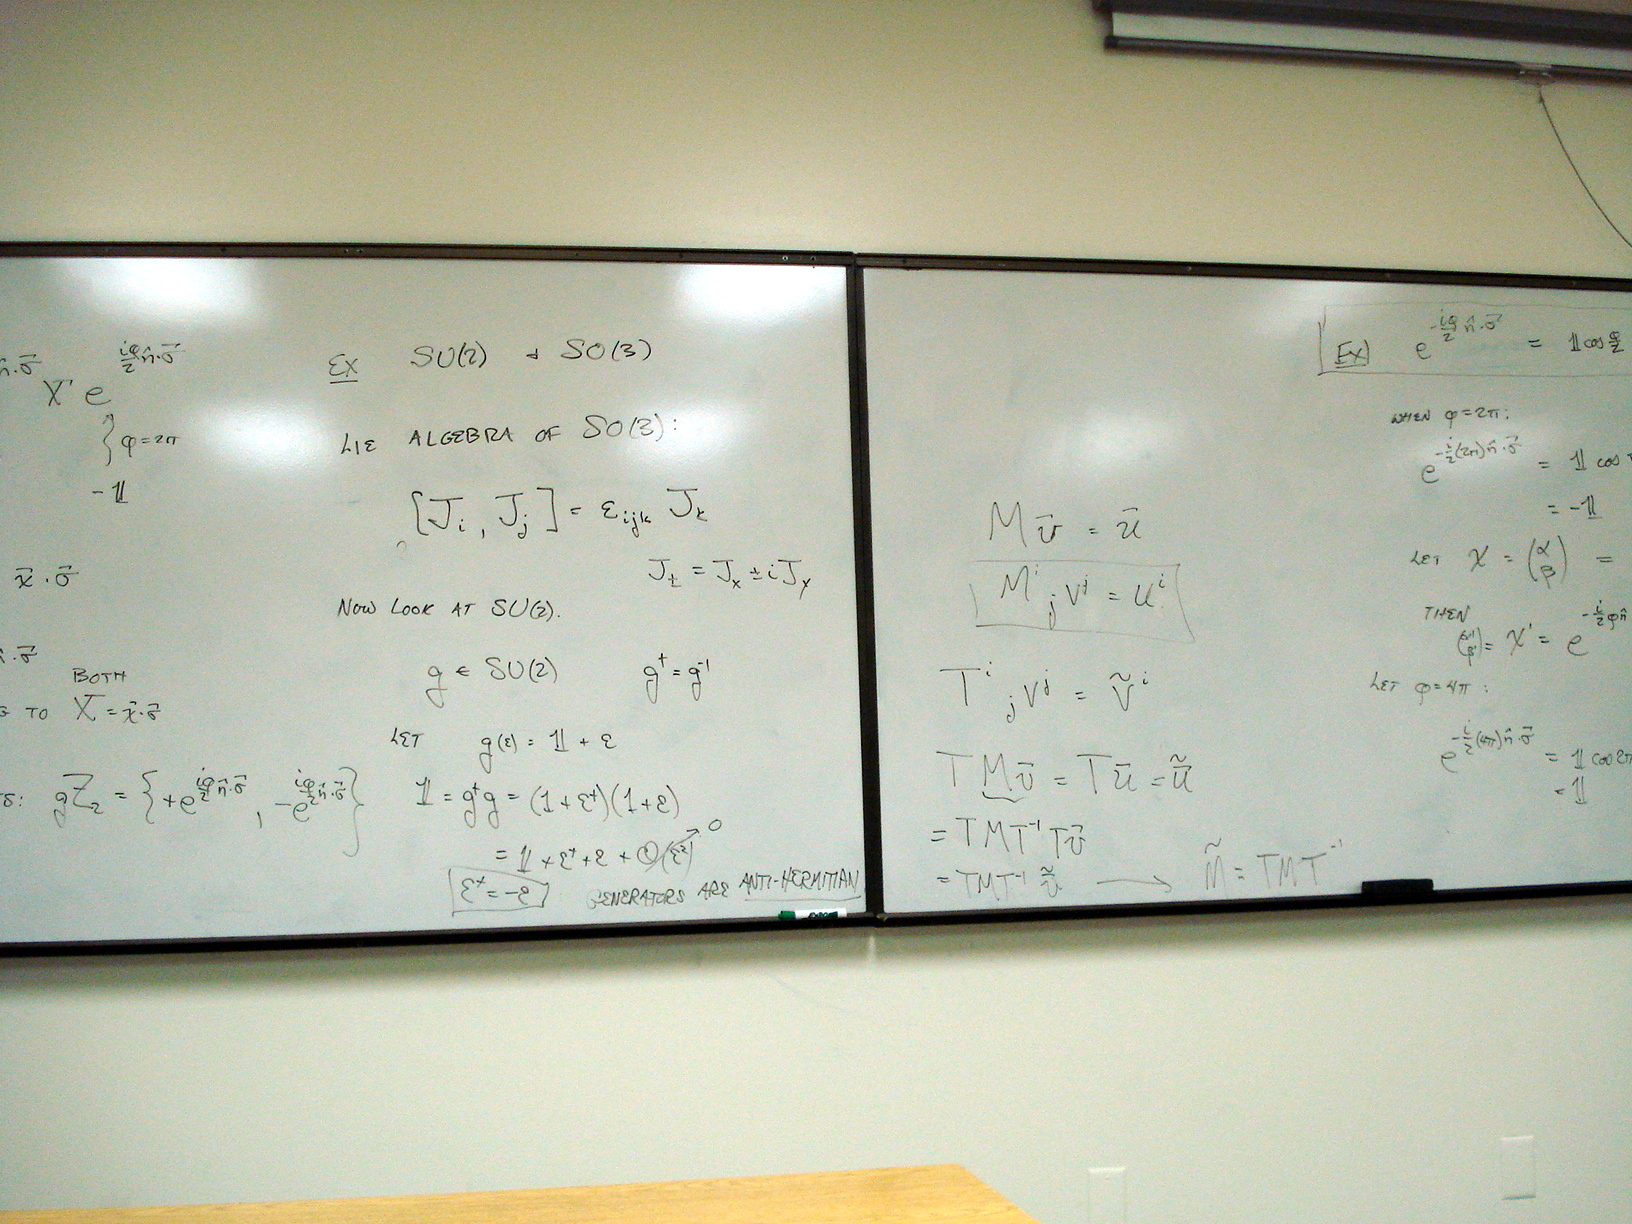 n̂·σ⃗
X' e^{iφ/2 n̂·σ⃗}
} φ=2π
-𝟙
x⃗·σ⃗
n̂·σ⃗
BOTH
TO X=x⃗·σ⃗
gZ₂ = {+e^{iφ/2 n̂·σ⃗}, -e^{iφ/2 n̂·σ⃗}}
EX SU(2) & SO(3)
LIE ALGEBRA OF SO(3):
[J_i, J_j] = ε_{ijk} J_k
J_± = J_x ± iJ_y
NOW LOOK AT SU(2).
g ∈ SU(2) g† = g⁻¹
LET g(ε) = 𝟙 + ε
𝟙 = g†g = (𝟙+ε†)(𝟙+ε)
= 𝟙 + ε† + ε + O(ε²) → 0
ε† = -ε GENERATORS ARE ANTI-HERMITIAN
EXPO
Mv⃗ = u⃗
M^i_j v^j = u^i
T^i_j v^j = ṽ^i
TMv⃗ = Tu⃗ = ũ⃗
= TMT⁻¹Tv⃗
= TMT⁻¹ṽ⃗ → M̃ = TMT⁻¹
EX) e^{-iφ/2 n̂·σ⃗} = 𝟙 cos φ/2
WHEN φ=2π:
e^{-i/2(2π)n̂·σ⃗} = 𝟙 cos
= -𝟙
LET χ = (α β) =
THEN
(α' β') = χ' = e^{-i/2 φn̂
LET φ=4π:
e^{-i/2(4π)n̂·σ⃗} = 𝟙 cos 2π
= 𝟙